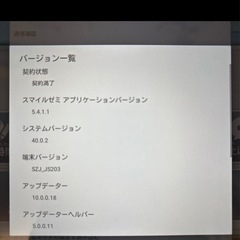 バージョン一覧
契約状態
契約満了
スマイルゼミ アプリケーションバージョン
5.4.1.1
システムバージョン
40.0.2
端末バージョン
SZJ_JS203
アップデーター
10.0.0.18
アップデーターヘルパー
5.0.0.11